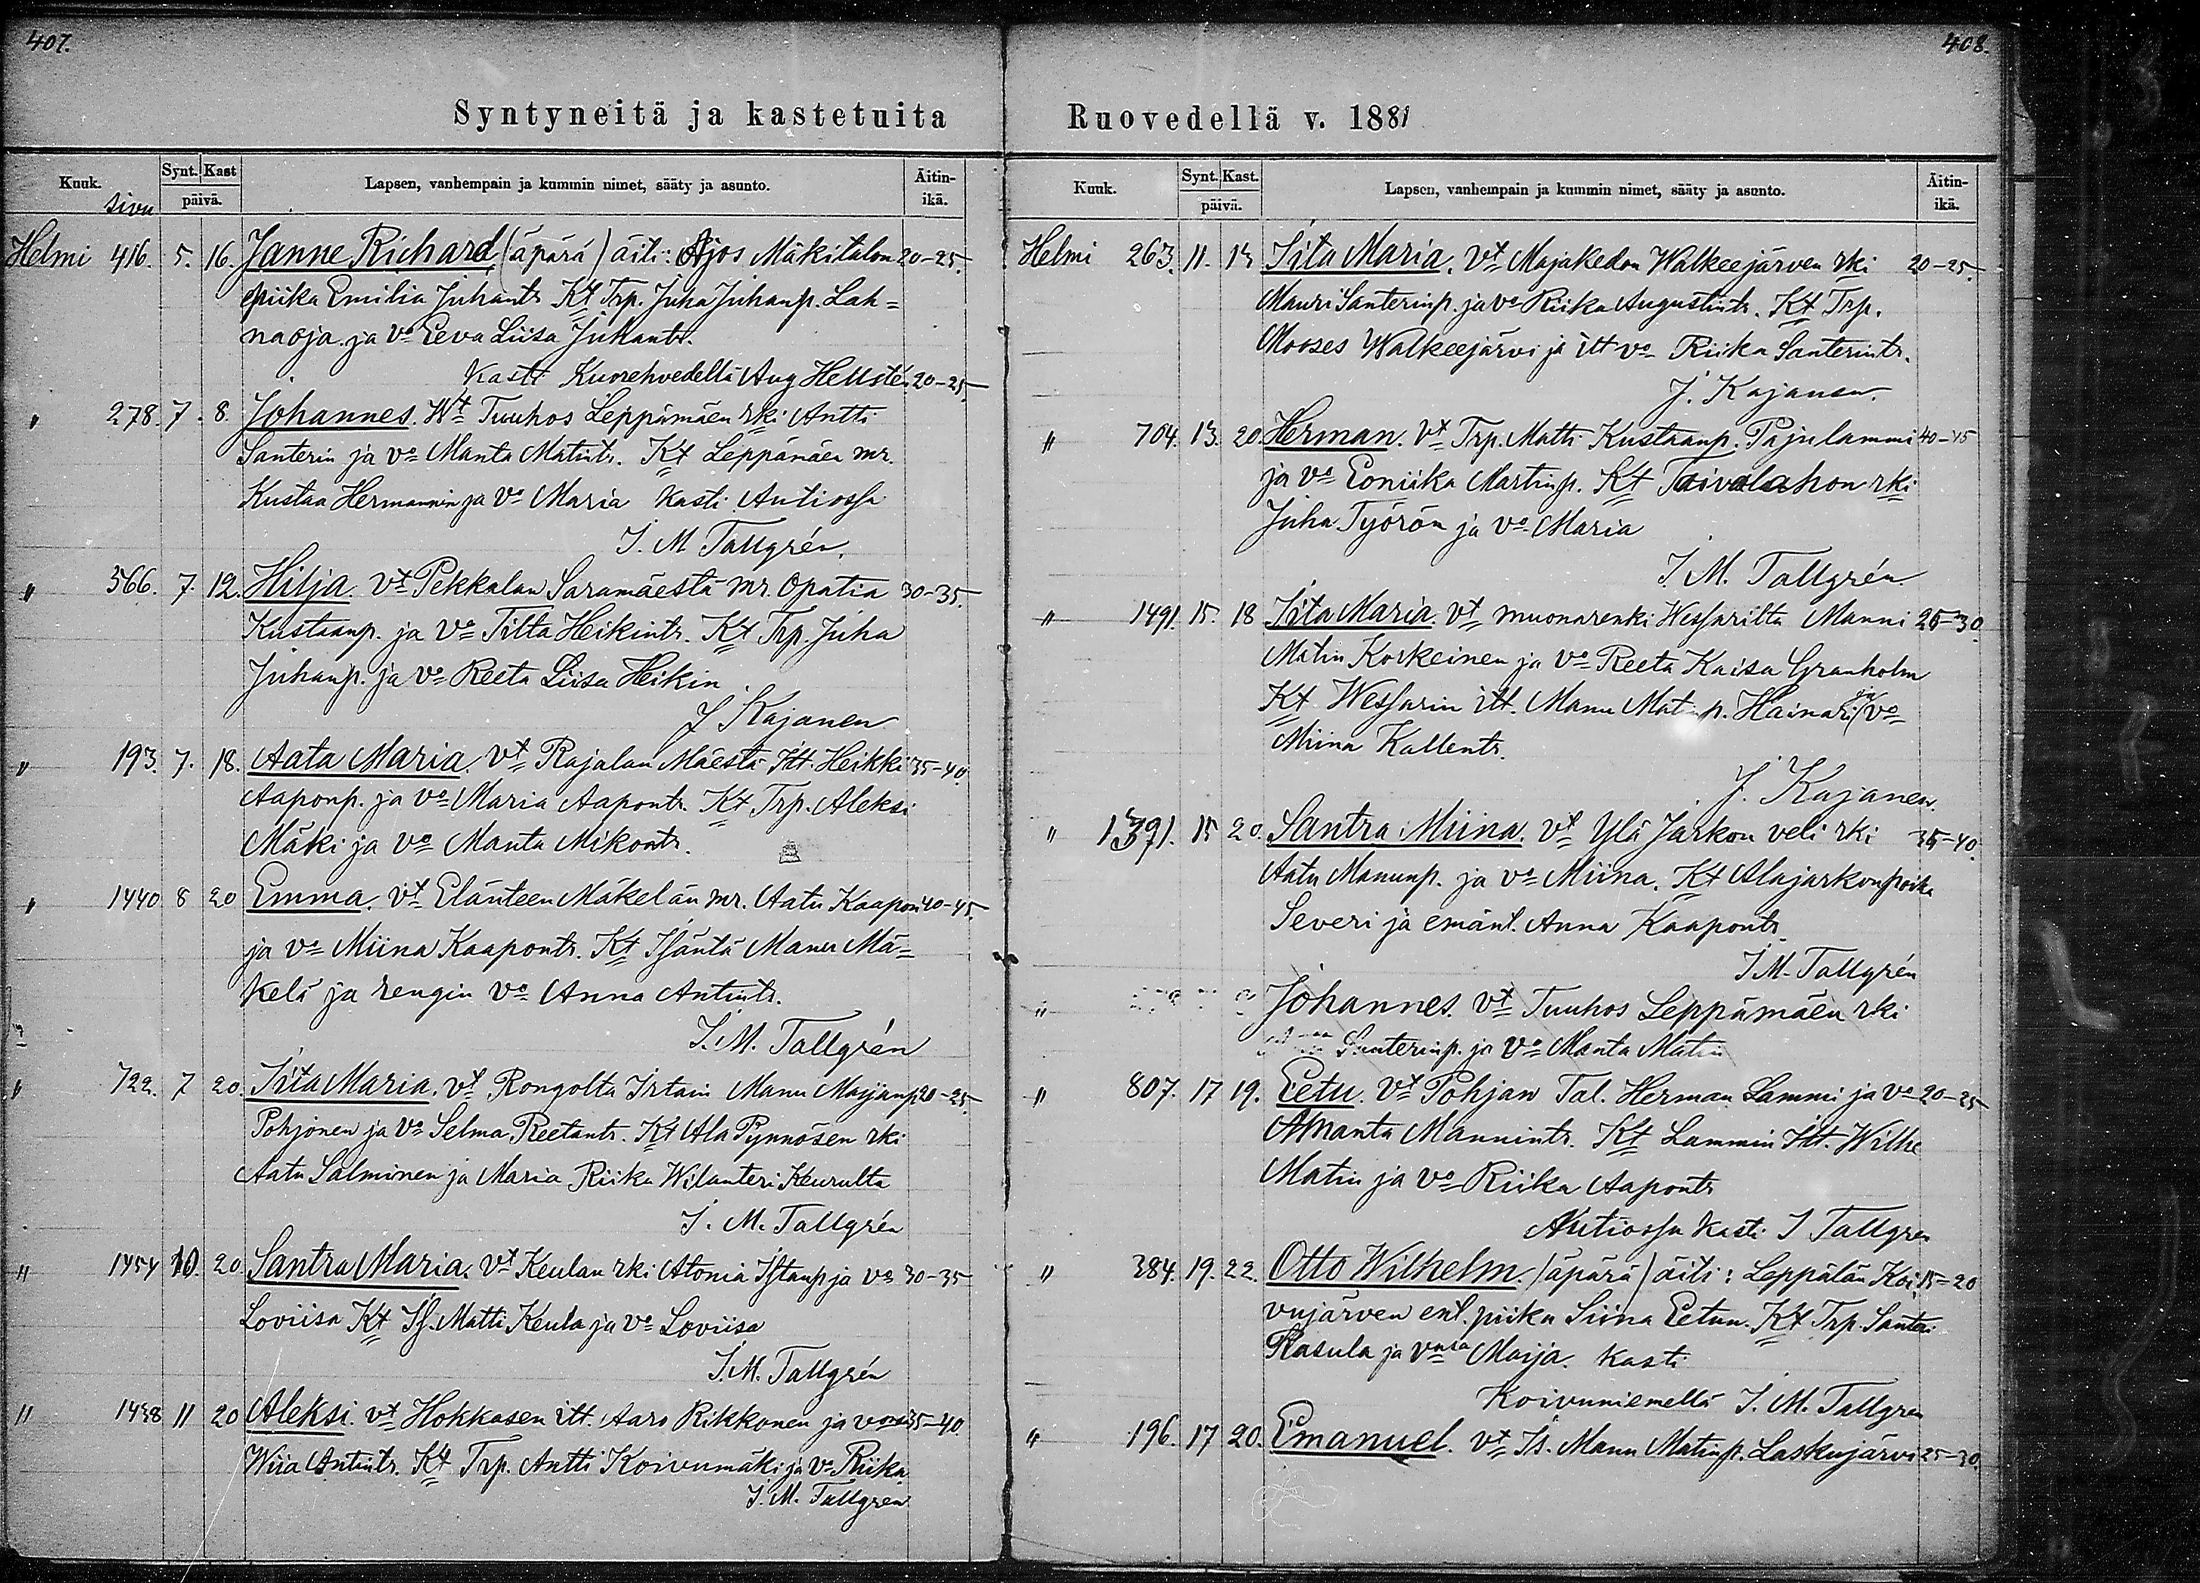 407.
Syntyneitä ja kastetuita
Kuuk. sivu Synt. Kast päivä. Lapsen, vanhempain ja kummin nimet, sääty ja asunto. Äitin-ikä.
Helmi 416. 5. 16. Janne Richard (äpärä) äiti: Ajos Mäkitalon 20-25.
piika Emilia Juhantr Kt Trp. Juha Juhanp. Lah=
naoja ja vo Eeva Liisa Juhantr.
Kasti Kuorehvedellä Aug Hellstén 20-25
" 278. 7. 8. Johannes. Vt Tuuhos Leppämäen rki Antti
Santerin ja vo Manta Matintr. Kt Leppämäen mr.
Kustaa Hermannin ja vo Maria kasti Autiossa
J. M Tallgrén.
" 566. 7. 12. Hilja. vt Pekkalan Saramäestä mr. Opatia 30-35.
Kustaanp. ja vo Titta Heikintr. Kt Trp. Juha
Juhanp. ja vo Reeta Liisa Heikin
J Kajanen
" 193. 7. 18. Aata Maria. vt Rajalan Mäestä Itt. Heikki 35-40
Aaponp. ja vo Maria Aapontr. Kt Trp. Aleksi
Mäki ja vo Manta Mikontr.
" 1440 8 20 Emma. vt Elänteen Mäkelän mr. Aatu Kaapon 40-45.
ja vo Miina Kaapontr. Kt Isäntä Manu Mä=
kelä ja rengin vo Anna Antintr.
J. M. Tallgrén
" 722. 7 20. Iita Maria. vt Rongolta Irtain Manu Maijanp 20-25
Pohjonen ja vo Selma Reetantr. Kt Ala Pynnösen rki
Aatu Salminen ja Maria Riika Wilanteri Keurulta
J. M. Tallgrén
" 1454 10. 20 Santra Maria. Vt Keulan rki Atonia Istanp ja vo 30-35
Loviisa Kt Is. Matti Keula ja vo Loviisa
J. M. Tallgrén
" 1438 11 20 Aleksi. vt Hokkasen itt. Aaro Rikkonen ja 35-40
Wiia Antintr. Kt Trp. Antti Koivumäki ja vo Riika
J. M. Tallgren
408.
Ruovedellä v. 1881
Kuuk. Synt. Kast. päivä. Lapsen, vanhempain ja kummin nimet, sääty ja asunto. Äitin-ikä.
Helmi 263. 11. 13 Iita Maria. Vt Majakedon Walkeejärven rki 20-25.
Mauri Santerinp. ja vo Riika Augustintr. Kt Trp.
Mooses Walkeejärvi ja itt vo Riika Santerintr.
J. Kajanen.
" 704. 13. 20. Herman. Vt Trp. Matti Kustaanp. Pajulammi 40-45
ja vo Eoniika Martinp. Kt Taivalahon rki
Juha Työrön ja vo Maria
J M. Tallgrén
" 1491. 15. 18 Iita Maria. vt muonarenki Wessarilta Manni 25-30.
Matin Korkeinen ja vo Reeta Kaisa Granholm
Kt Wessarin itt. Manu Matinp. Hainari ja vo
Miina Kallentr.
J. Kajanen.
" 1391. 15 20. Santra Miina. vt Ylä Jarkon veli rki 35-40.
Aatu Manunp. ja vo Miina. Kt Alajarkon poika
Severi ja emänt. Anna Kaapontr.
J M. Tallgrén
" Johannes. vt Tuuhos Leppämäen rki
Santerinp. ja vo Manta Matin
" 807. 17 19. Eetu. vt Pohjan Tal. Herman Lammi ja vo 20-25
Amanta Mannintr. Kt Lammin Itt. Wilhe
Matin ja vo Riika Aapontr
Autiossa kasti J Tallgren
" 384. 19. 22. Otto Wilhelm. (äpärä) äiti: Leppälän Koi 15-20
vujärven ent. piika Siina Eetun. Kt Trp. Santeri
Rasula ja vnsa Maija. kasti
Koivuniemellä J. M. Tallgren
" 196. 17 20. Emanuel. vt Is. Manu Matinp. Laskujärvi 25-30.